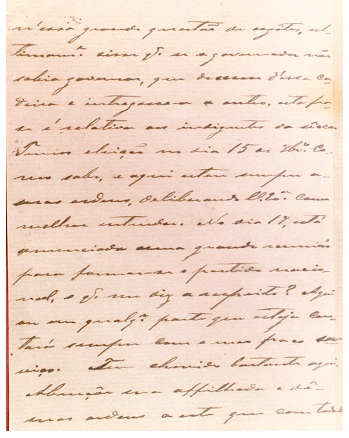 n'essa grande questão de
disse q. se o governador não
sabia governar, que descesse d'essa ca-
deira e entregasse-a a outro, esta fra-
se é relativa aos indigentes da sêcca.
Temos eleição no dia 15 de 9br. Co-
mo sabe, e aqui estou sempre a
suas ordens, deliberando V. Exª. como
melhor entender. No dia 17, está
annunciada uma grande reunião
para formar-se o partido nacio-
nal, o q. me diz a respeito? Aqui
ou em qualqr. parte que esteja con-
tará sempre com o meu fraco ser-
viço. Tem chovido bastante aqui.
Abenção sua affilhada e dê
suas ordens a este que com toda